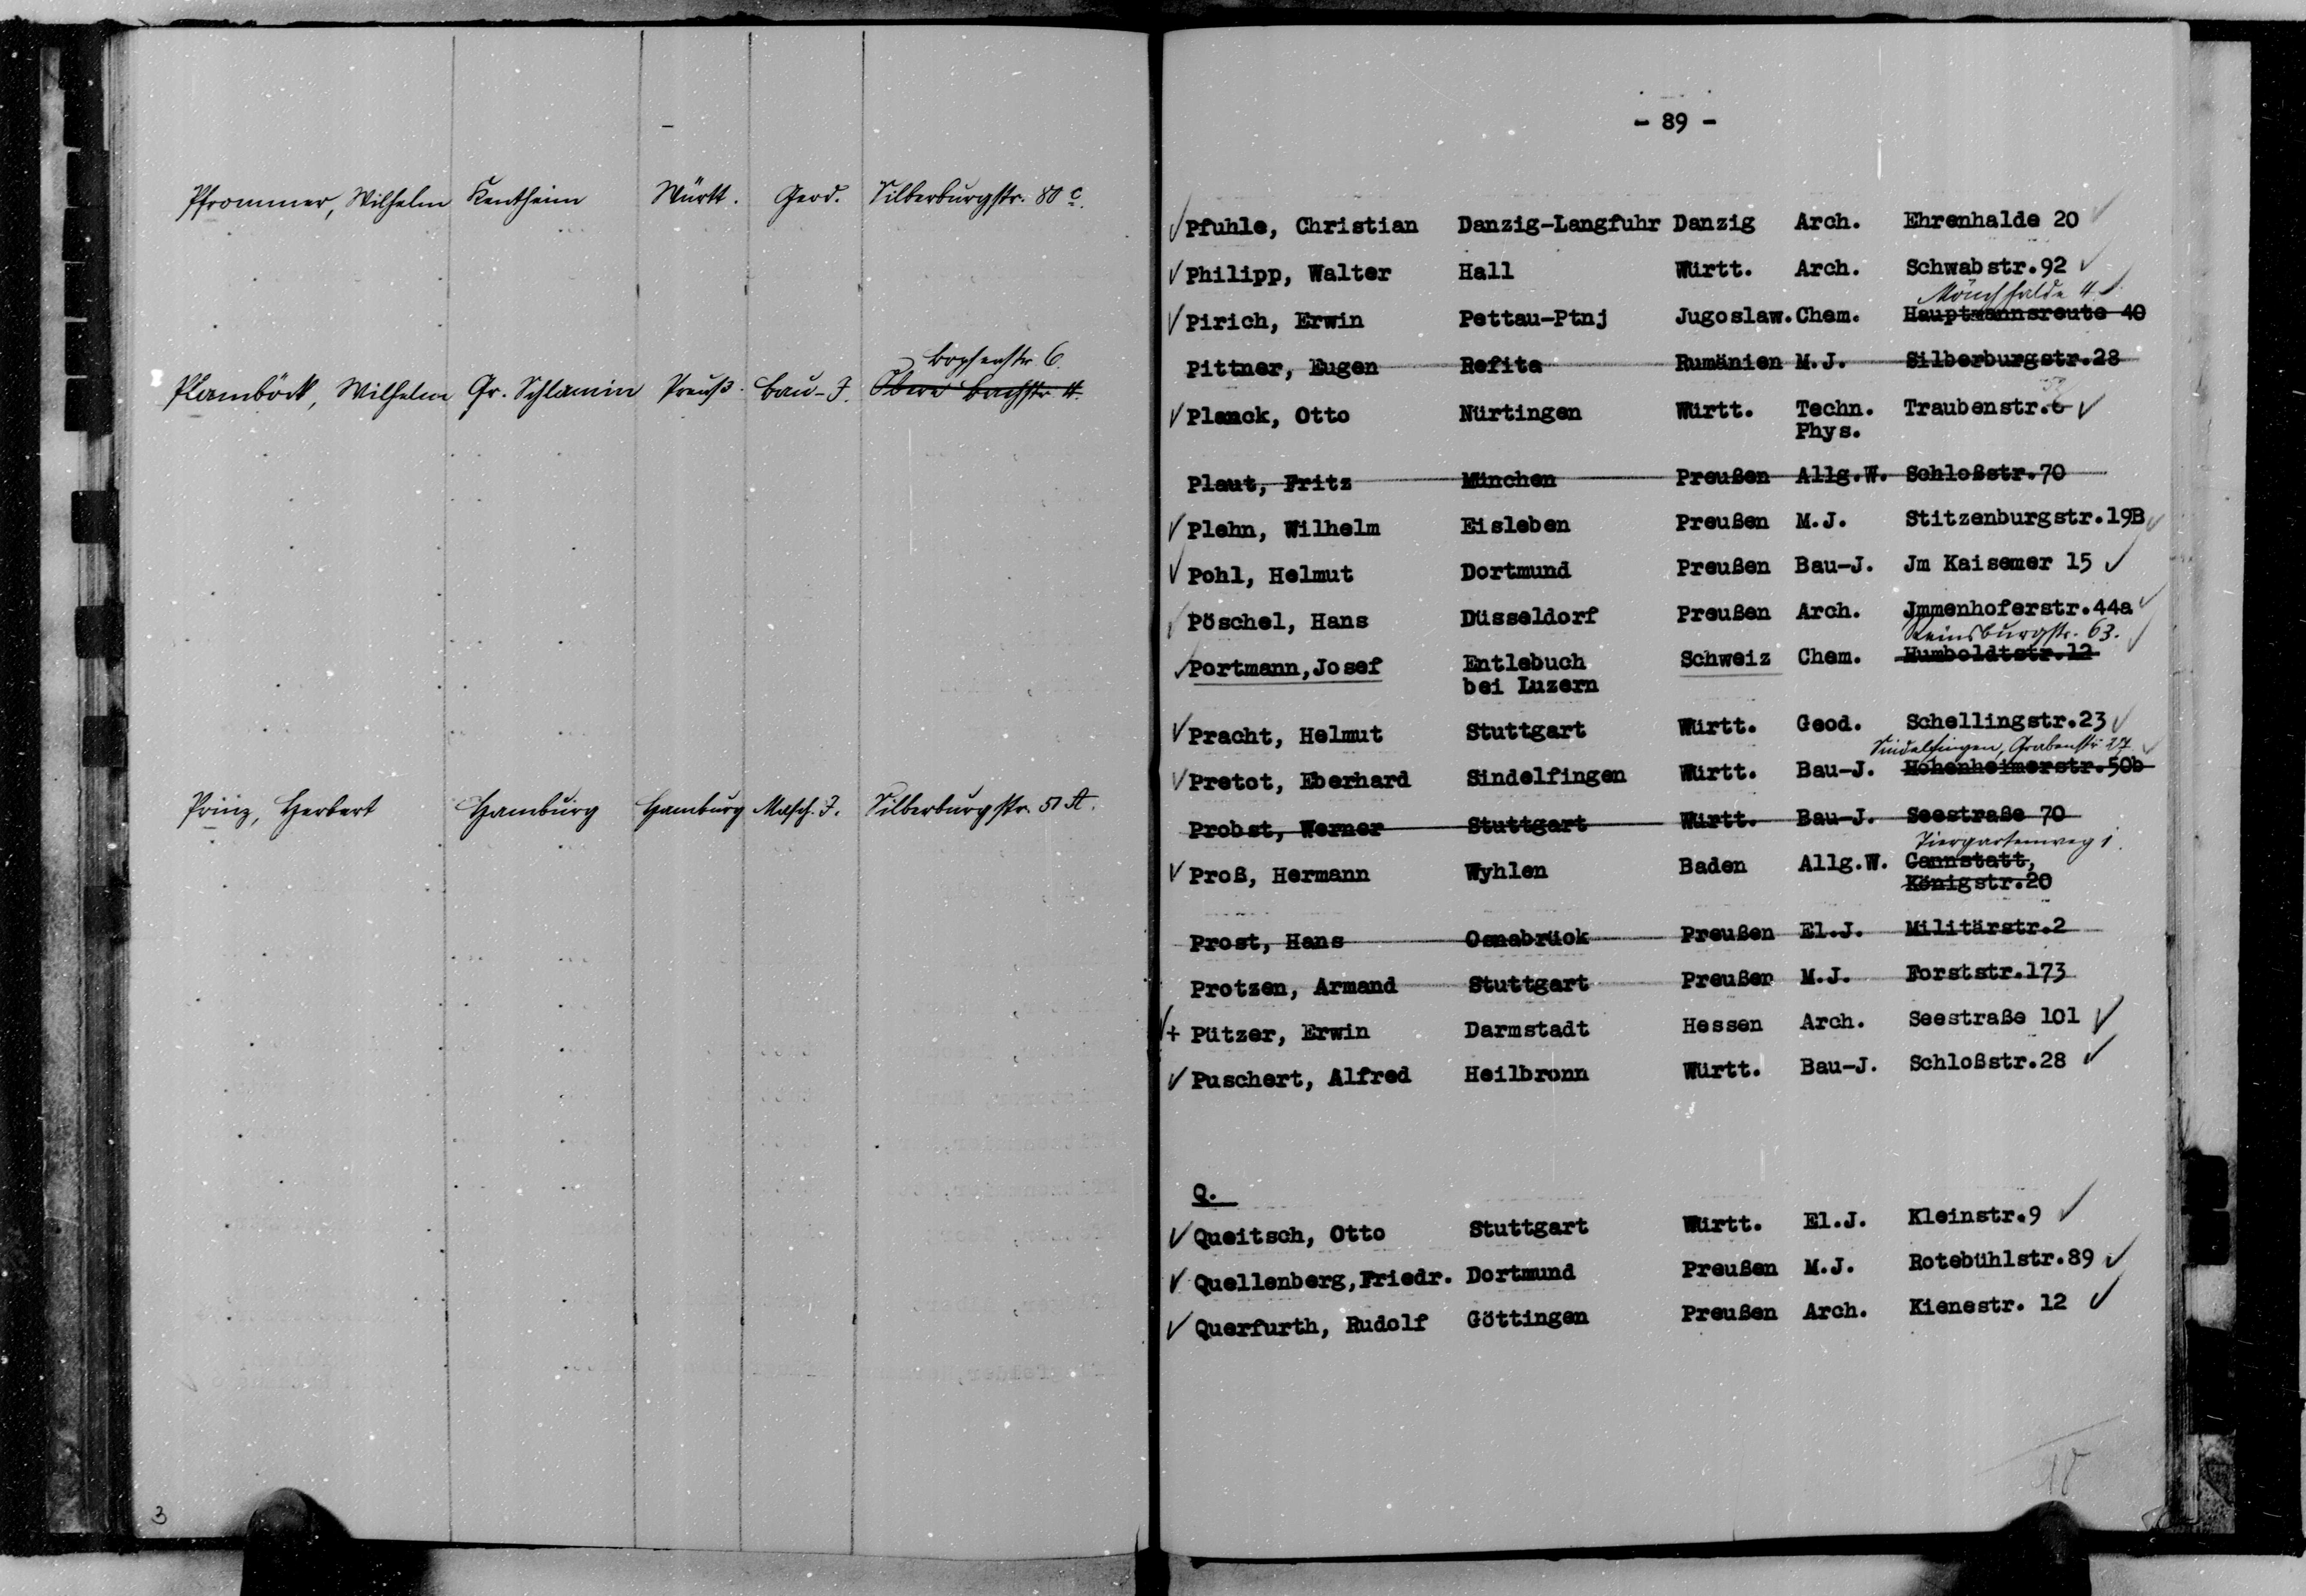 Pfrommer, Wilhelm Kentheim Württ. Geod. Silberburgstr. 80 c.
Bopserstr. 6.
Plamböck, Wilhelm Gr. Schlamin Preuß. Bau-J. Obere Bachstr. 4.
Prinz, Herbert Hamburg Hamburg Masch. J. Silberburgstr. 51 A.
3
- 89 -
Pfuhle, Christian Danzig-Langfuhr Danzig Arch. Ehrenhalde 20
Philipp, Walter Hall Württ. Arch. Schwabstr.92
Mönchhalde 4
Pirich, Erwin Pettau-Ptnj Jugoslaw. Chem. Hauptmannsreute 40
Pittner, Eugen Refita Rumänien M.J. Silberburgstr.28
Planck, Otto Nürtingen Württ. Techn. Traubenstr.6
Phys.
Plaut, Fritz München Preußen Allg.W. Schloßstr.70
Plehn, Wilhelm Eisleben Preußen M.J. Stitzenburgstr.19B
Pohl, Helmut Dortmund Preußen Bau-J. Jm Kaisemer 15
Pöschel, Hans Düsseldorf Preußen Arch. Jmmenhoferstr.44a
Reinsburgstr. 63.
Portmann,Josef Entlebuch Schweiz Chem. Humboldtstr.12
bei Luzern
Pracht, Helmut Stuttgart Württ. Geod. Schellingstr.23
Sindelfingen, Grabenstr.
Pretot, Eberhard Sindelfingen Württ. Bau-J. Hohenheimerstr.50b
Probst, Werner Stuttgart Württ. Bau-J. Seestraße 70
Tiergartenweg 1.
Proß, Hermann Wyhlen Baden Allg.W. Cannstatt,
Königstr.20
Prost, Hans Osnabrück Preußen El.J. Militärstr.2
Protzen, Armand Stuttgart Preußen M.J. Forststr.173
+ Pützer, Erwin Darmstadt Hessen Arch. Seestraße 101
Puschert, Alfred Heilbronn Württ. Bau-J. Schloßstr.28
Q.
Queitsch, Otto Stuttgart Württ. El.J. Kleinstr.9
Quellenberg,Friedr. Dortmund Preußen M.J. Rotebühlstr.89
Querfurth, Rudolf Göttingen Preußen Arch. Kienestr. 12
18